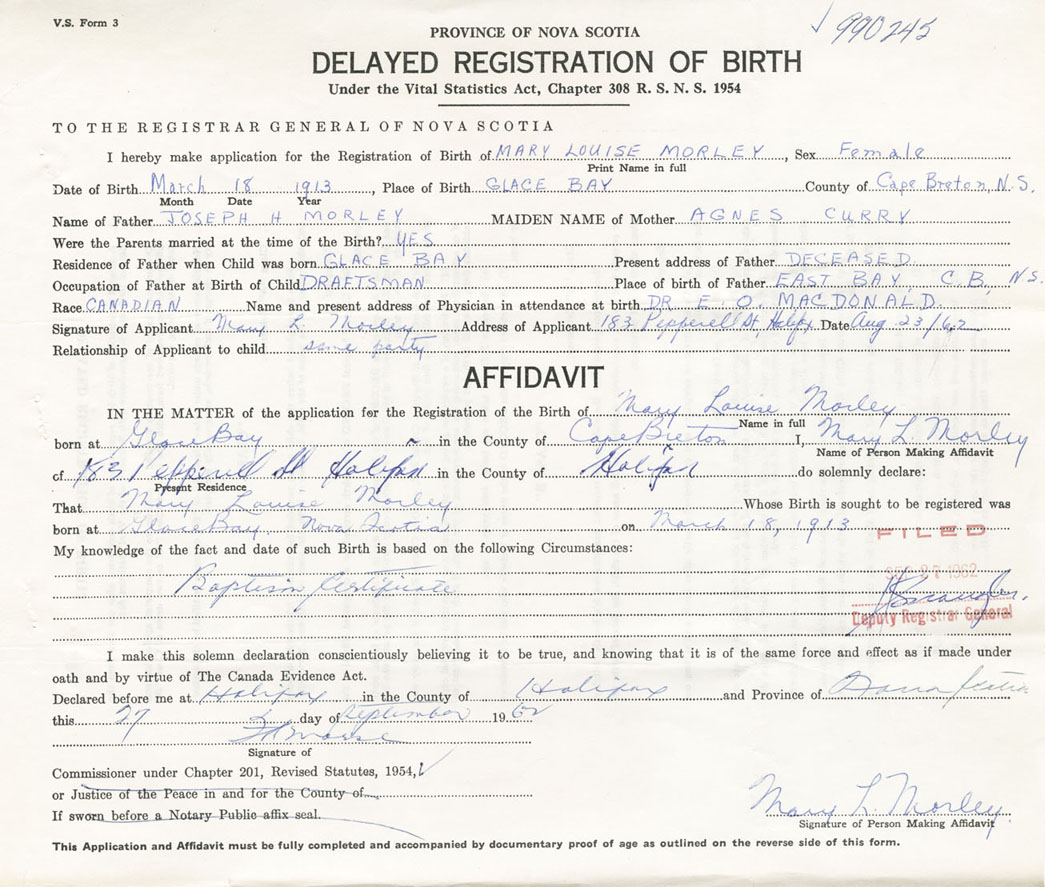 V.S. Form 3
990245
PROVINCE OF NOVA SCOTIA
DELAYED REGISTRATION OF BIRTH
Under the Vital Statistics Act, Chapter 308 R. S. N. S. 1954
TO THE REGISTRAR GENERAL OF NOVA SCOTIA
I hereby make application for the Registration of Birth of MARY LOUISE MORLEY, Sex Female
Print Name in full
Date of Birth March 18 1913, Place of Birth GLACE BAY County of Cape Breton, N.S.
Month Date Year
Name of Father JOSEPH H MORLEY MAIDEN NAME of Mother AGNES CURRY
Were the Parents married at the time of the Birth? YES
Residence of Father when Child was born GLACE BAY Present address of Father DECEASED
Occupation of Father at Birth of Child DRAFTSMAN Place of birth of Father EAST BAY, C.B., N.S.
Race CANADIAN Name and present address of Physician in attendance at birth DR. E. O. MACDONALD
Signature of Applicant Mary L. Morley Address of Applicant 183 Pepperell St, Halifax Date Aug 23/62
Relationship of Applicant to child same party
AFFIDAVIT
IN THE MATTER of the application for the Registration of the Birth of Mary Louise Morley
Name in full
born at Glace Bay in the County of Cape Breton I, Mary L. Morley
Name of Person Making Affidavit
of 183 Pepperell St Halifax in the County of Halifax do solemnly declare:
Present Residence
That Mary Louise Morley Whose Birth is sought to be registered was
born at Glace Bay, Nova Scotia on March 18, 1913
FILED
My knowledge of the fact and date of such Birth is based on the following Circumstances:
SEP 27 1962
Baptism Certificate
Deputy Registrar General
I make this solemn declaration conscientiously believing it to be true, and knowing that it is of the same force and effect as if made under
oath and by virtue of The Canada Evidence Act.
Declared before me at Halifax in the County of Halifax and Province of Nova Scotia
this 27 day of September 1962
Signature of
Commissioner under Chapter 201, Revised Statutes, 1954,
or Justice of the Peace in and for the County of
If sworn before a Notary Public affix seal.
Mary L. Morley
Signature of Person Making Affidavit
This Application and Affidavit must be fully completed and accompanied by documentary proof of age as outlined on the reverse side of this form.